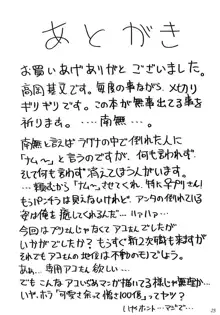 あとがき
お買いあげありがとうございました。
高岡基文です。毎度の事ながら、〆切り
ギリギリです。この本が無事出てる事を
祈ります。‥‥南無‥‥。
南無と言えばラグナの中で倒れた人に
「ナム〜」と言うのですが、何も言わず、
そして何も言わず消えてしまう人がいます。
頼むから「ナム〜」させてくれ、特に辛プリさん!
もうパンチラは見えないけれど、アンタの倒れている
姿は俺を癒してくれるんだ‥‥ハァハァ‥
今回はプリさんじゃなくてアコさんでしたが
いかがでしたか? もうすぐ新2次職も来ますが
それでもアコさんの地位は不動のものでしょう。
ああ、専用アコさん欲しい‥‥
でもこんなアコいぢめマンガ描いてる様じゃ無理か‥
いや、ホラ「可愛さ余って憎さ100倍」ってヤツ?
いやホント‥マジで‥